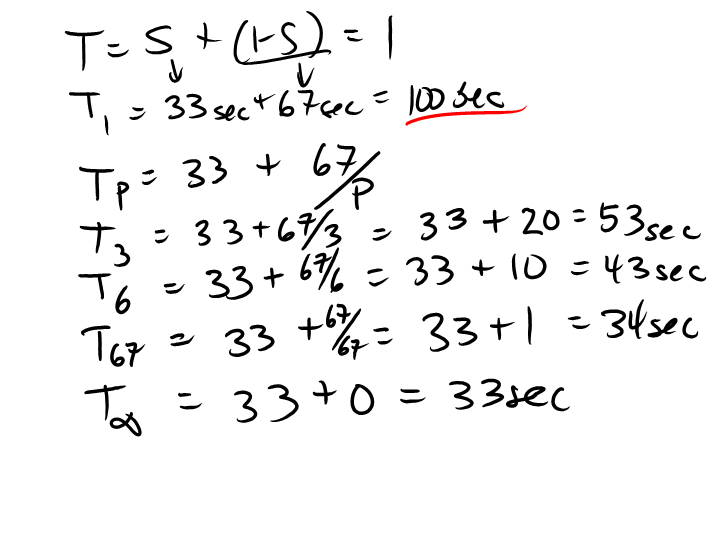 T = S + (1-S) = 1
T₁ = 33sec + 67sec = 100sec
Tₚ = 33 + 67/P
T₃ = 33 + 67/3 = 33 + 20 = 53sec
T₆ = 33 + 67/6 = 33 + 10 = 43sec
T₆₇ = 33 + 67/67 = 33 + 1 = 34sec
T∞ = 33 + 0 = 33sec